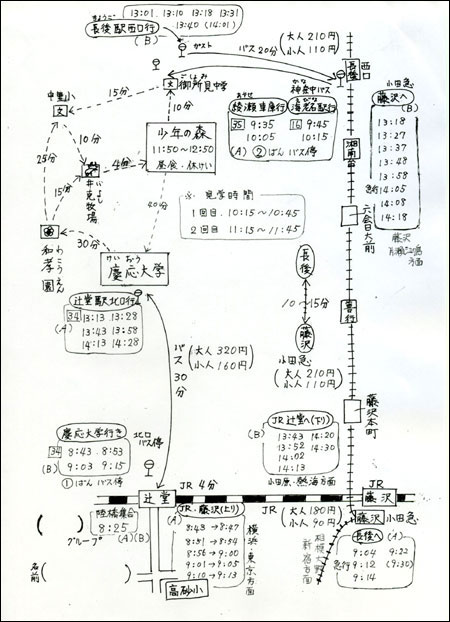 きょうごう
13:01. 13:10 13:18 13:31
13:40 (14:01)
長後駅西口行
(B)
ガスト
バス20分
(大人210円
小人110円)
西口
長後
小田急
藤沢へ
(B)
13:18
13:27
13:37
13:48
13:58
急行 14:05
14:08
14:18
藤沢
方面
中里小
文
15分
ごしょみ
文 御所見中学
10分
あやせ
綾瀬車庫行
35 9:35
10:05
(A) ② ばん バス停
かな
神奈中バス
海老名駅行
16 9:45
10:15
湘南台
六会日大前
善行
藤沢本町
少年の森
11:50～12:50
昼食・休けい
10分
25分
4分
井出牧場
15分
40分
わこうえん
和孝園
30分
けいおう
慶応大学
※見学時間
1回目. 10:15～10:45
2回目 11:15～11:45
辻堂駅北口行
34 13:13 13:28
(A) 13:43 13:58
14:13 14:28
バス30分
(大人320円
小人160円)
長後
10～15分
藤沢
小田急
(大人210円
小人110円)
慶応大学行き
34 8:43・8:53
(B) 9:03 9:15
① ばん バス停
北口バス停
JR辻堂へ(下り)
(B)
13:43 14:20
13:52 14:30
14:02
14:13
小田原・熱海方面
辻堂
JR 4分
JR
藤沢
(大人180円
小人90円)
藤沢 小田急
陸橋集合
8:25
(A)(B)
( )
グループ
名前( )
JR・藤沢(上り)
(A)
8:43→8:47
8:51→8:54
8:56→9:00
9:01→9:05
9:10→9:13
横浜・東京方面
高砂小
相模大野
新宿方面
長後へ (A)
9:04 9:22
急行 9:12 (9:30)
9:14